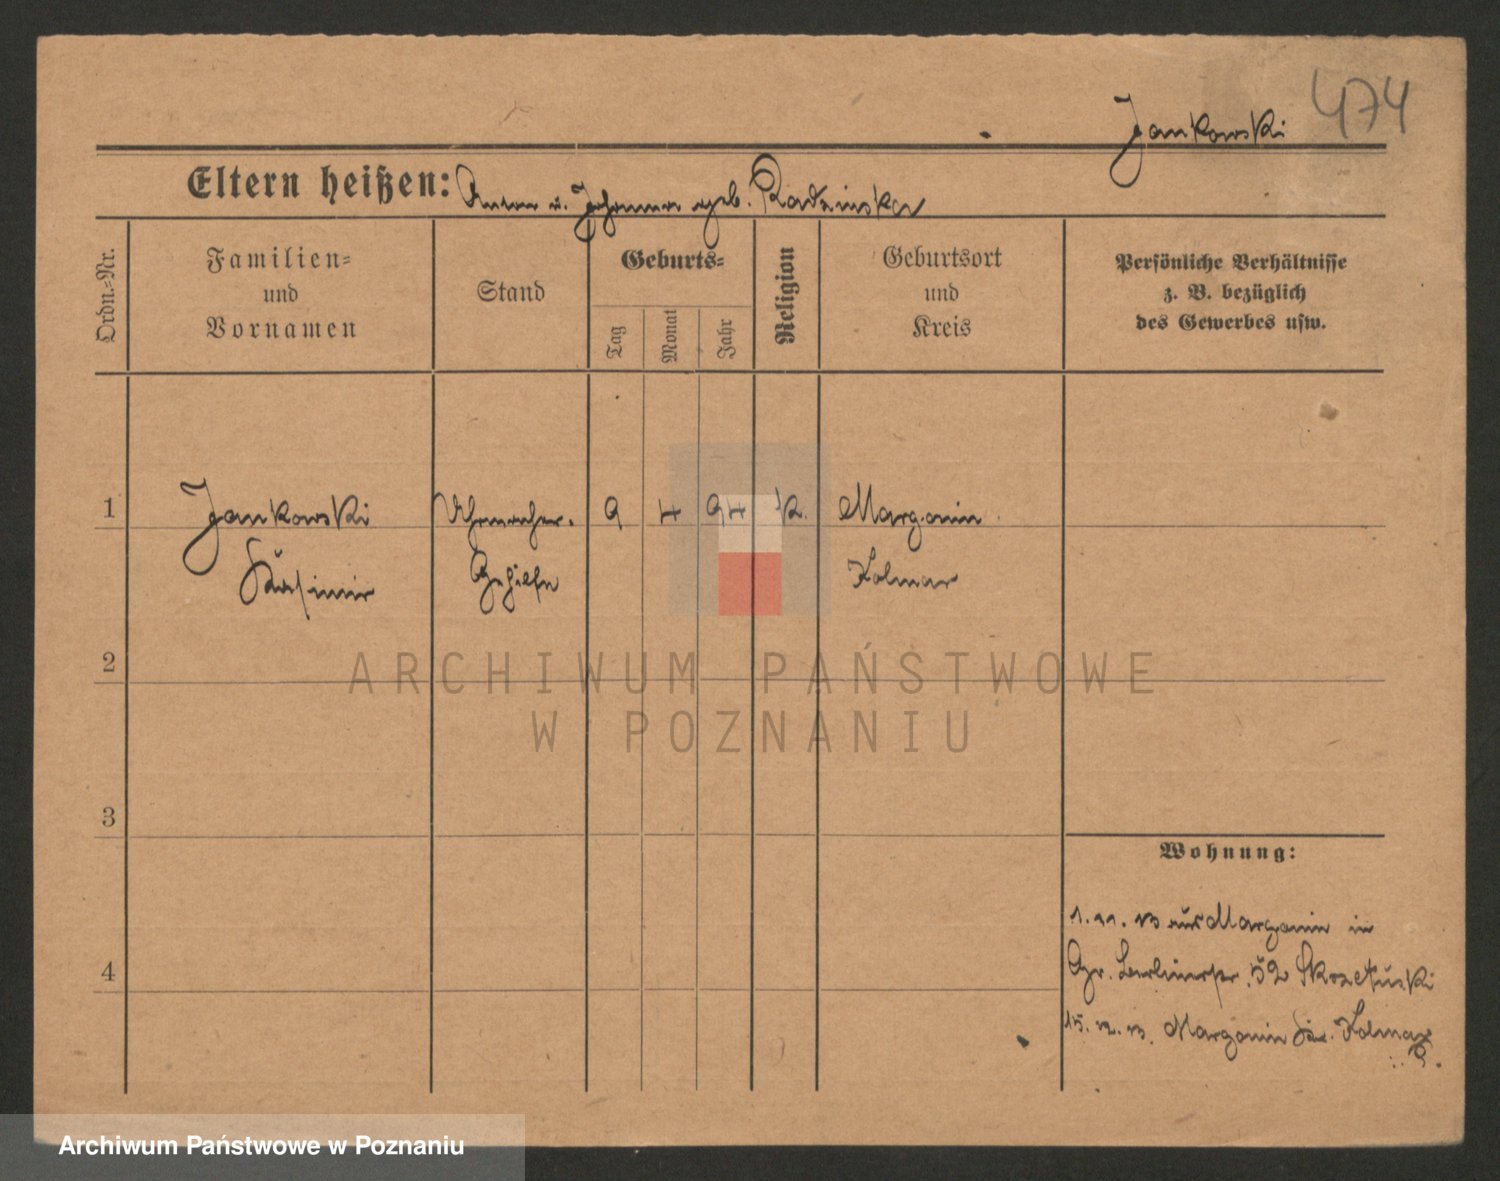 474
Jankowski
Eltern heißen: u. Johanna geb. Radzinska
Ordn.=Nr.
Familien=
und
Vornamen
Stand
Geburts=
Tag
Monat
Jahr
Religion
Geburtsort
und
Kreis
Persönliche Verhältnisse
z. B. bezüglich
des Gewerbes usw.
1
Jankowski
Kasimir
Uhrmacher-
Gehilfe
9
4
94
k.
Margonin
Kolmar
2
3
4
ARCHIWUM PAŃSTWOWE
W POZNANIU
Wohnung:
1.11.13 aus Margonin in
Gr. Berlinerstr. 52
15.12.13. Margonin Kr. Kolmar
Archiwum Państwowe w Poznaniu